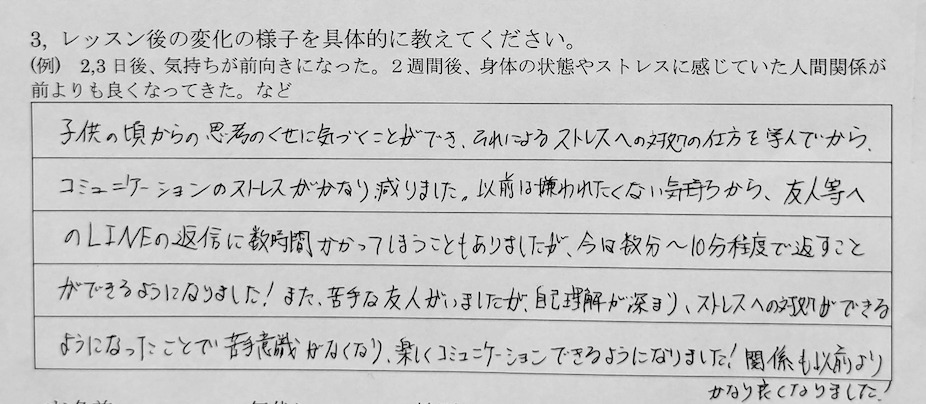 3, レッスン後の変化の様子を具体的に教えてください。
(例) 2,3日後、気持ちが前向きになった。2週間後、身体の状態やストレスに感じていた人間関係が
前よりも良くなってきた。など
子供の頃からの思考のくせに気づくことができ、それによるストレスへの対処の仕方を学んでから、
コミュニケーションのストレスがかなり減りました。以前は嫌われたくない気持ちから、友人等へ
のLINEの返信に数時間かかってしまうこともありましたが、今は数分〜10分程度で返すこと
ができるようになりました!また、苦手な友人がいましたが、自己理解が深まり、ストレスへの対処ができる
ようになったことで苦手意識がなくなり、楽しくコミュニケーションできるようになりました!関係も以前より
かなり良くなりました!